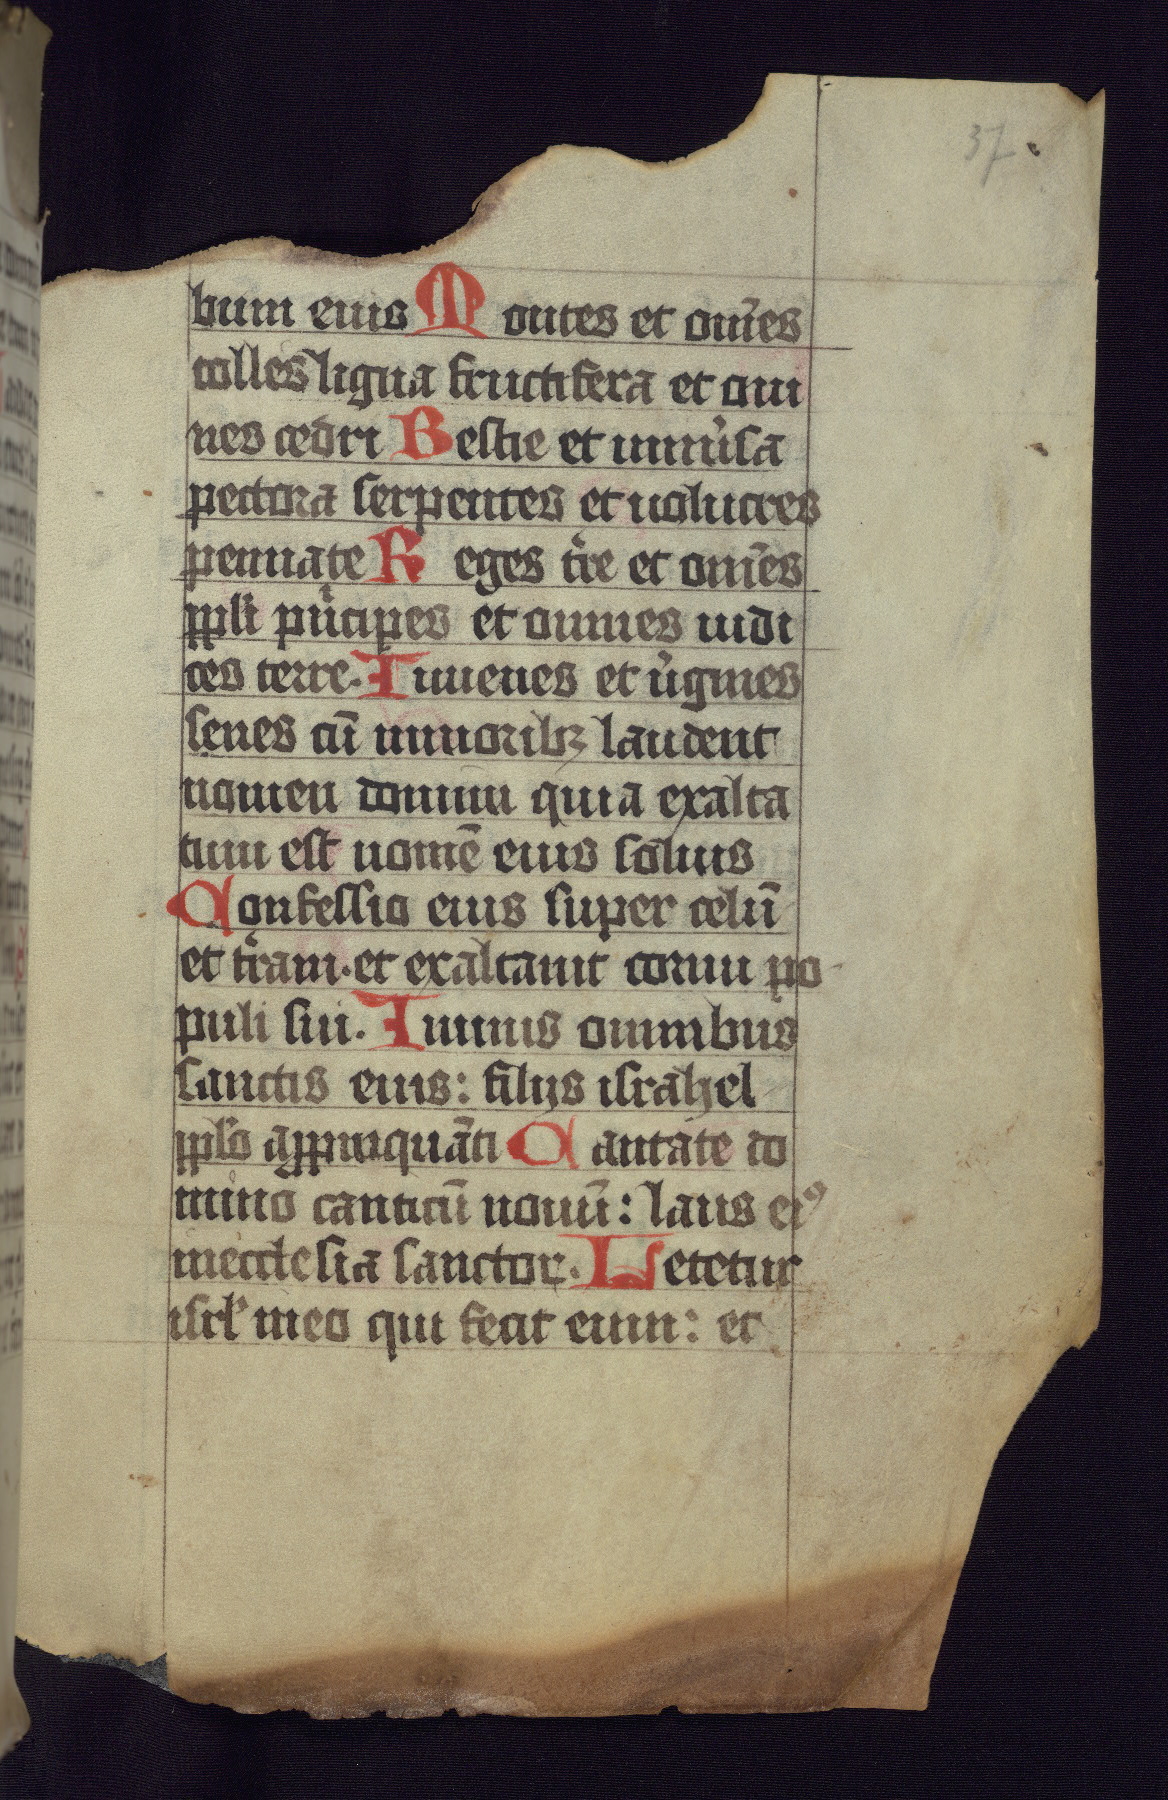 37
bum eius Montes et om̄es
colles ligna fructifera et om
nes cedri Bestie et uniuͥsa
pectora serpentes et uolucres
pennate Reges tͥre et om̄es
ppl̄i pͥncipes et omnes iudi
ces terre. Iuuenes et uͥgines
senes cū iunioribꝫ laudent
nomen domini quia exalta
tum est nomē eius solius
Confessio eius super celū
et tͥram. et exaltauit cornu po
puli sui. Iminis omnibus
sanctis eius: filijs israhel
ppl̄o appinquāti Cantate do
mino canticū nouū: laus eiꝰ
inecclesia sanctor. Letetur
isrl' ineo qui fecit eum: et